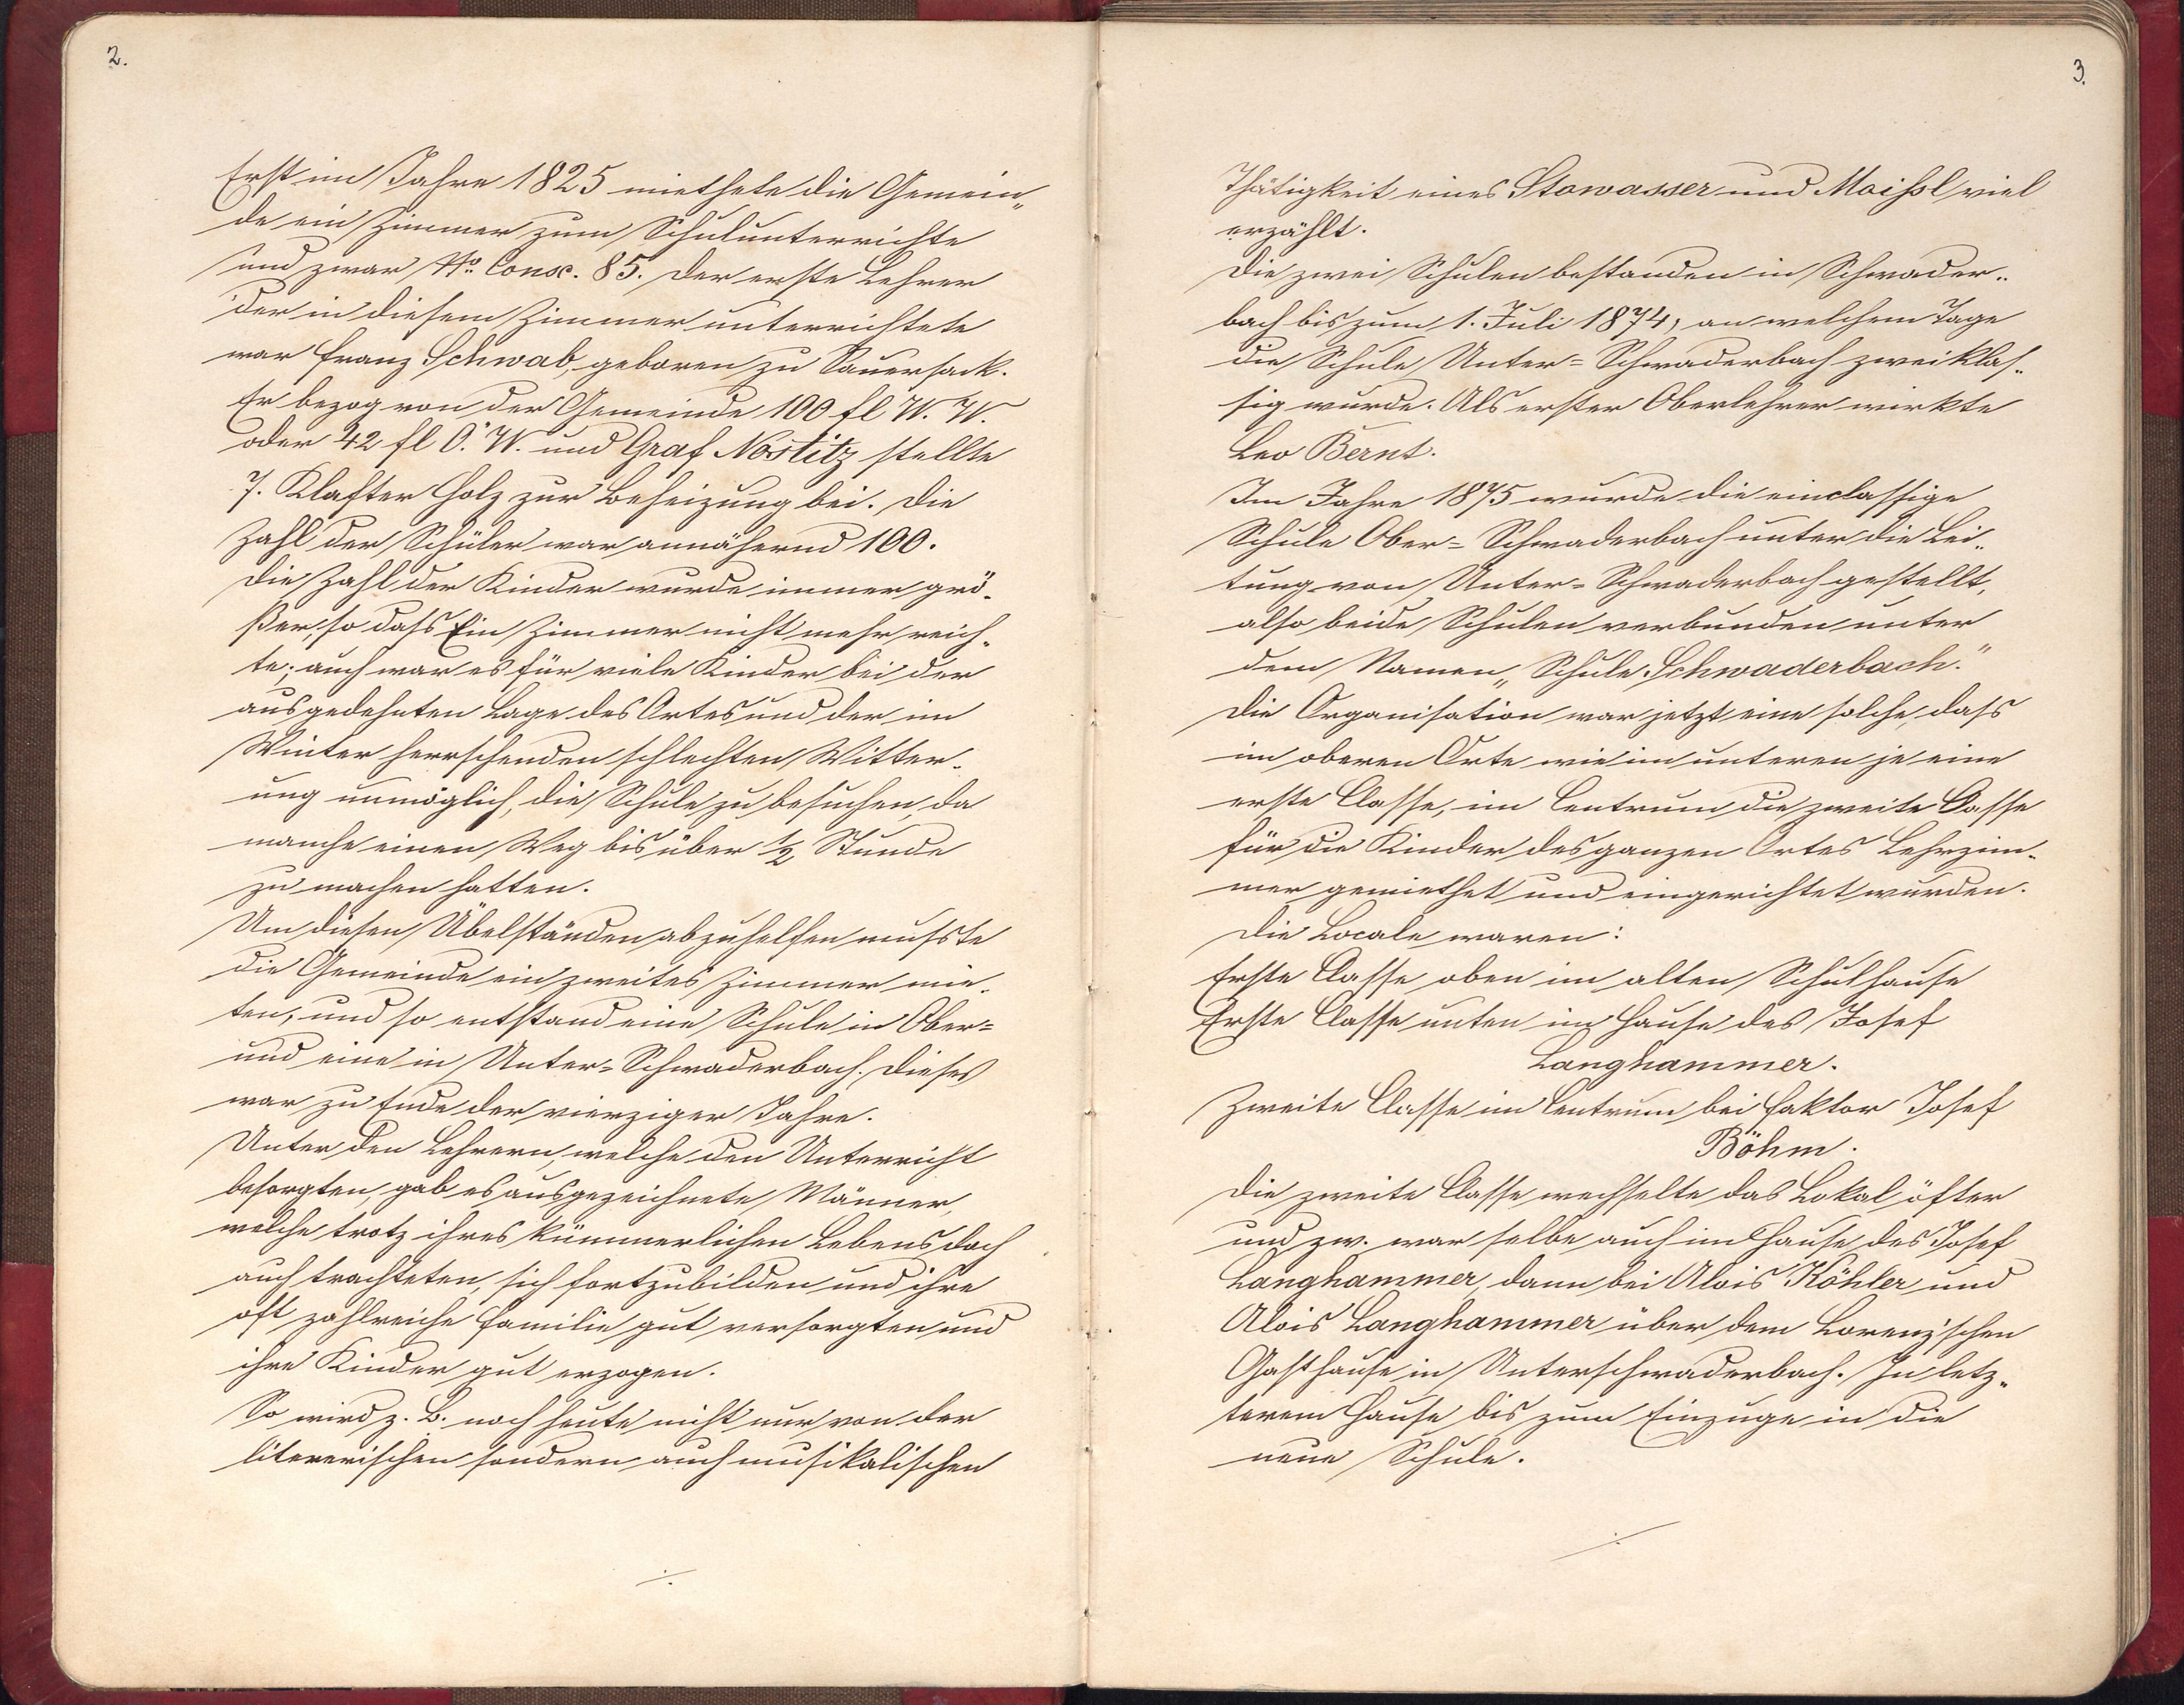 2.
Erst im Jahre 1825 miethete die Gemein„
de ein Zimmer zum Schulunterrichte
und zwar No. Consc. 85. Der erste Lehrer
der in diesem Zimmer unterrichtete
war Franz Schwab, geboren zu Sauersack.
Er bezog von der Gemeinde 100 fl W. W.
oder 42 fl Ö. W. und Graf Nostitz stellte
7. Klafter Holz zur Beheizung bei. Die
Zahl der Schüler war annähernd 100.
Die Zahl der Kinder wurde immer grö-
ßer, so dass Ein Zimmer nicht mehr reich-
te; auch war es für viele Kinder bei der
ausgedehnten Lage des Ortes und der im
Winter herrschenden schlechten Witter-
ung unmöglich, die Schule zu besuchen, da
manche einen Weg bis über 1/2 Stunde
zu machen hatten.
Um diesen Übelständen abzuhelfen musste
die Gemeinde ein zweites Zimmer mie-
ten, und so entstand eine Schule in Ober=
und eine in Unter=Schwaderbach. Dieses
war zu Ende der vierziger Jahre.
Unter den Lehrern, welche den Unterricht
besorgten, gab es ausgezeichnete Männer,
welche trotz ihres kümmerlichen Lebens doch
auch trachteten, sich fortzubilden und ihre
oft zahlreiche Familie gut versorgten und
ihre Kinder gut erzogen.
So wird z. B. noch heute nicht nur von der
literarischen sondern auch musikalischen
./.
3.
Thätigkeit eines Stowasser und Maissl viel
erzählt.
Die zwei Schulen bestanden in Schwader„
bach bis zum 1. Juli 1874, an welchem Tage
die Schule Unter=Schwaderbach zweiklas„
sig wurde. Als erster Oberlehrer wirkte
Leo Bernt.
Im Jahre 1875 wurde die einclassige
Schule Ober=Schwaderbach unter die Lei„
tung von Unter=Schwaderbach gestellt,
also beide Schulen verbunden unter
dem Namen „Schule Schwaderbach."
Die Organisation war jetzt eine solche, dass
im oberen Orte wie im unteren je eine
erste Classe, im Centrum die zweite Classe
für die Kinder des ganzen Ortes Lehrzim-
mer gemiethet und eingerichtet wurden.
Die Locale waren:
Erste Classe oben im alten Schulhause
Erste Classe unten im Hause des Josef
Langhammer.
Zweite Classe im Centrum bei Faktor Josef
Böhm.
Die zweite Classe wechselte das Lokal öfter
und zw. war selbe auch im Hause des Josef
Langhammer, dann bei Alois Köhler und
Alois Langhammer über dem Lorenz'schen
Gasthause in Unterschwaderbach. In letz„
terem Hause bis zum Einzuge in die
neue Schule.
./.